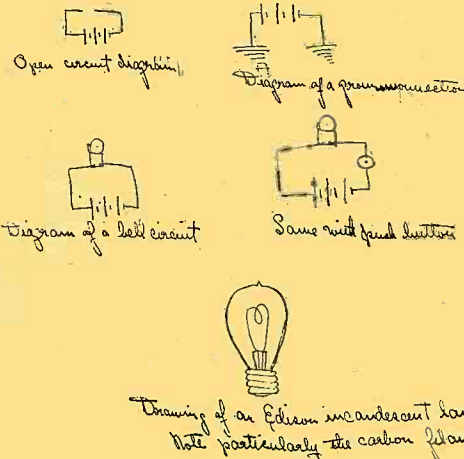 Open circuit diagram
Diagram of a
Diagram of a bell circuit
Same with push button
Drawing of an Edison incandescent
Note particularly the carbon